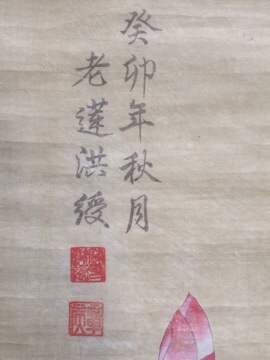 癸卯年秋月
老蓮洪綬